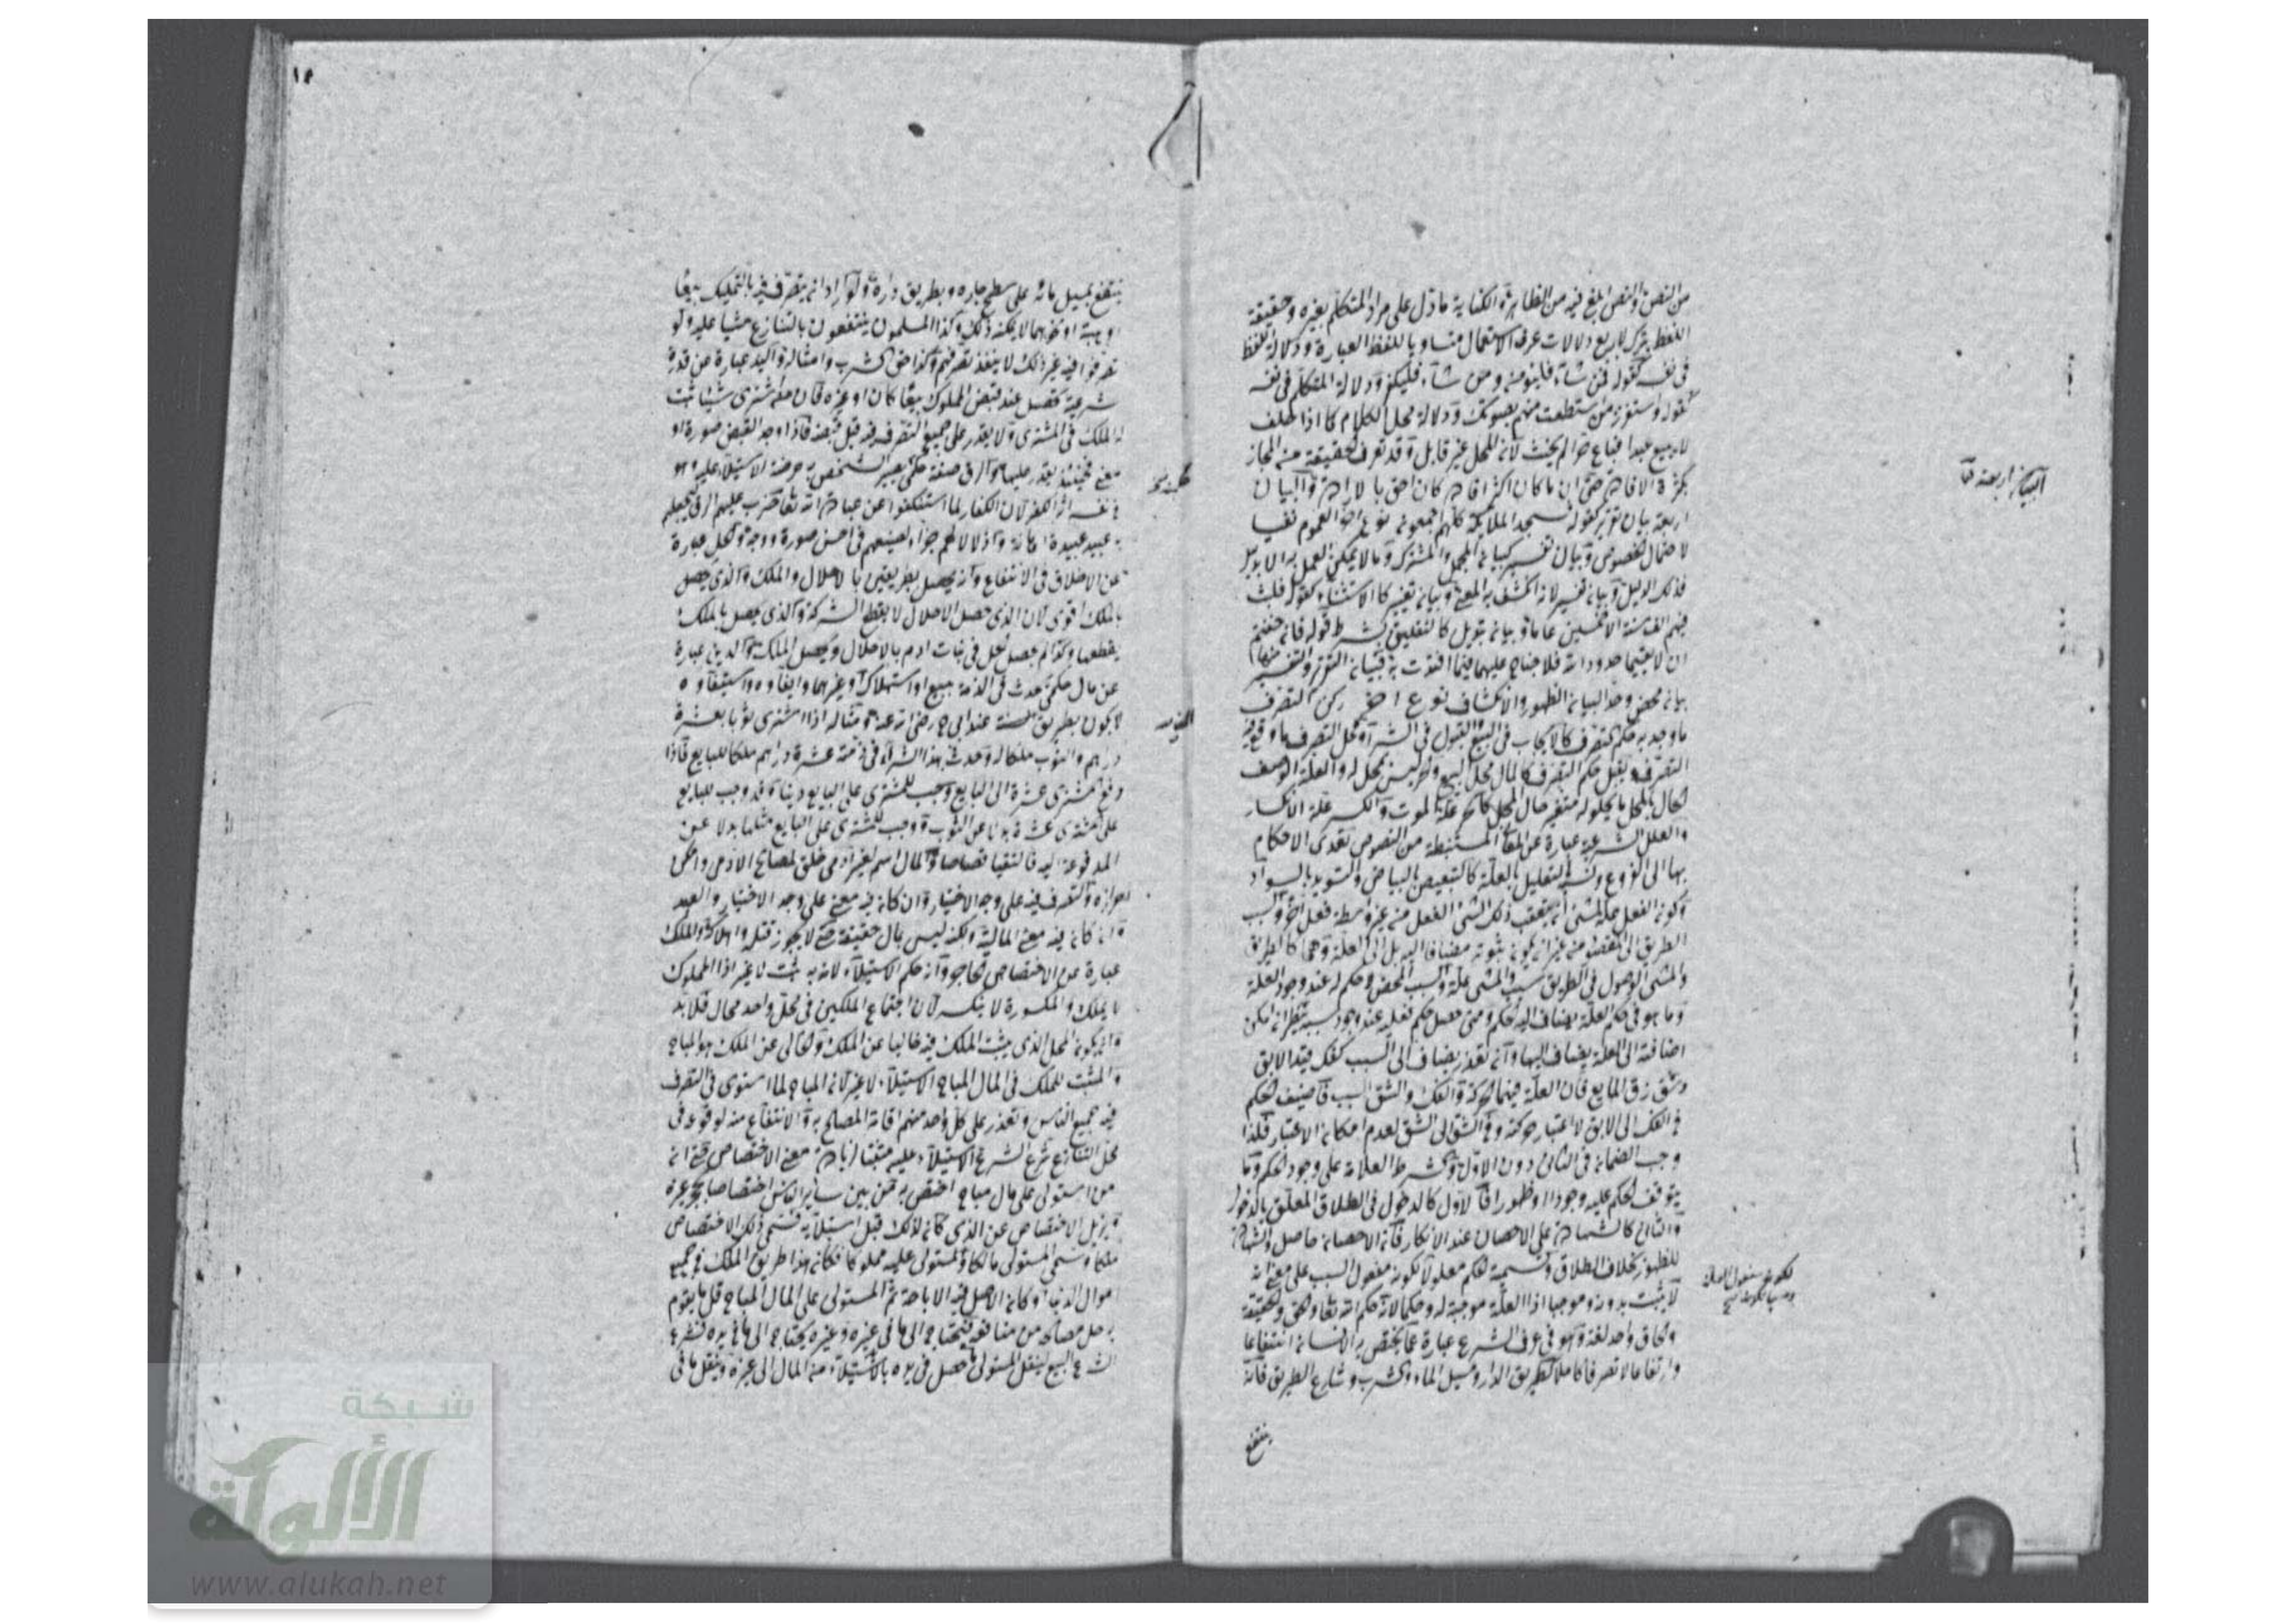 من النص والنص ابلغ فيه من الظاهر والكناية ما دل على مراد المتكلم بغيره وحقيقة
اللفظ يترك باربع دلالات عرف الاستعمال متساويا للفظ العبارة ودلالة اللفظ
في نفسه كقوله فمن شاء فليؤمن ومن شاء فليكفر ودلالة المتكلم في نفسه
كقوله واستفزز من استطعت منهم بصوتك ودلالة محل الكلام كما اذا حلف
لا يبيع عبدا فباع حرا لم يحنث لان المحل غير قابل وقد تعرف الحقيقة من المجاز
بكثرة الافادة حتى ان ما كان اكثر افادة كان احق بالارادة والبيان
البيان اربعة
اربعة بيان تقرير كقوله فسجد الملائكة كلهم اجمعون نوع اخذ العموم نفيا
لاحتمال الخصوص وبيان تفسير كبيان المجمل والمشترك وما لا يمكن العمل به الا بدليل
فذلك الدليل بيان تفسير لانه انكشف به المعنى وبيان تغيير كالاستثناء كقوله فلبث
فيهم الف سنة الا خمسين عاما وبيان تبديل كالتعليق بشرط قوله فان خفتم
ان لا يقيما حدود الله فلا جناح عليهما فيما افتدت به فبيان التقرير والتفسير
بيان محض وحد البيان الظهور والانكشاف نوع اخر ركن التصرف
ما وجد به حكم التصرف كالايجاب في البيع والقبول في الشراء ومحل التصرف ما وقع فيه
التصرف وقبل حكم التصرف كالمال محل البيع والحر ليس بمحل له والعلة الوصف
الحال بالمحل ما بحلوله متغير حال المحل كالجرح علة الموت والكسر علة الانكسار
والعلل الشرعية عبارة عن المعاني المستنبطة من النصوص تعدى الاحكام
بها الى الفروع وتسمى التعليل بالعلة كالتبييض بالبياض والتسويد بالسواد
وكون الفعل علة لشئ ان يتعقب ذلك الشئ الفعل من غير واسطة فعل اخر والسبب
الطريق الى المقصد من غير ان يكون ثبوته مضافا اليه بل الى العلة وهي كالطريق
والمشي الوصول في الطريق سبب والمشي علة والسبب المحض لا حكم له عند وجود العلة
وما هو في حكم العلة يضاف اليه الحكم ومتى حصل حكم فعليه عند وجود سببه ينظر ان امكن
اضافته الى العلة يضاف اليها وان تعذر يضاف الى السبب كفك قيد الآبق
وشق زق المايع فان العلة فيهما الحركة والفك والشق السبب فاضيف الحكم
في الفك الى الآبق لاعتبار حركته وفي الشق الى الشق لعدم امكان الاعتبار فلذا
وجب الضمان في الثاني دون الاول والشرط العلامة على وجود الحكم وما
يتوقف الحكم عليه وجودا او ظهورا فالاول كالدخول في الطلاق المعلق بالدخول
والثاني كالشهادة على الاحصان عند الانكار فان الاحصان حاصل والشهادة
للظهور بخلاف الطلاق وتسمية الحكم معلولا لكونه مفعول السبب على معنى انه
لا يثبت بدونه وموجبا اذا العلة موجبة له وحكما لانه حكم الله تعالى والحق والحقيقة
والحاق واحد لغة وهو في عرف الشرع عبارة عما يختص به الانسان انتفاعا
وارتفاعا لا تصرفا كاملا كطريق الدار ومسيل الماء والشرب وشارع الطريق فانه
ينتفع
ينتفع بمسيل مائه على سطح جاره وبطريق داره ولو اراد ان يتصرف فيه بالتمليك بيعا
او هبة او نحوهما لا يمكنه ذلك وكذا المسلمون ينتفعون بالشارع مشيا عليه ولو
تصرفوا فيه غير ذلك لا ينفذ تصرفهم وكذا حق الشرب وامثاله واليد عبارة عن قدرة
شرعية تحصل عند قبض المملوك بيعا كان او غيره فان من اشترى شيئا ثبت
له الملك في المشترى ولا يقدر على جميع التصرف فيه قبل قبضه فاذا وجد القبض صورة او
معنى فحينئذ يقدر عليها والرق صفة حكمية يصير الشخص به عرضة الاستيلاء عليه وهو
في نفسه اثر الكفر لان الكفار لما استنكفوا عن عبادة الله تعالى ضرب عليهم الرق بجعلهم
عبيد عبيده اهانة واذلالا لهم جزاء لصنيعهم في احسن صورة ووجه والحل عبارة
عن الاطلاق في الانتفاع وانه يحصل بطريقين بالاحلال والملك والذي يحصل
بالملك اقوى لان الذي حصل الاحلال لا يقطع الشركة والذي يحصل بالملك
يقطعها وكذا لم يحصل الحل في بنات ادم بالاحلال ويحصل الملك والدين عبارة
عن مال حكمي حدث في الذمة ببيع او استهلاك وغيرهما وايفاؤه واستيفاؤه
لا يكون بطريق المقاصة عند ابي ح رضي الله عنه مثاله اذا اشترى ثوبا بعشرة
دراهم والثوب ملكا له وحدث بهذا الشراء في ذمته عشرة دراهم ملكا للبايع فاذا
دفع المشتري عشرة الى البايع وجب للمشتري على البايع دينا وقد وجب للبايع
على المشتري عشرة بدلا عن الثوب ووجب للمشتري على البايع مثلها بدلا عن
المدفوعة اليه فالتقيا قصاصا والمال اسم لغير آدمي خلق لمصالح الآدمي وامكن
احرازه والتصرف فيه على وجه الاختيار وان كان فيه معنى على وجه الاختيار والعبد
وان كان فيه معنى المالية ولكنه ليس بمال حقيقة حتى لا يجوز قتله واهلاكه والملك
عبارة عن الاختصاص الحاجز وانه حكم الاستيلاء لانه به يثبت لا غير اذا المملوك
لا يملك والمكسورة لا ينكسر لان اجتماع الملكين في محل واحد محال فلا بد
وان يكون المحل الذي يثبت الملك فيه خاليا عن الملك والخالي عن الملك هو المباح
والمثبت للملك في المال المباح الاستيلاء لا غير لان المباح لما استوى في التصرف
فيه جميع الناس وتعذر على كل واحد منهم اقامة المصالح به والانتفاع منه لوقوعه في
محل التنازع شرع الشرع الاستيلاء عليه مثبتا لزيادة معنى الاختصاص حتى ان
من استولى على مال مباح اختص به من بين سائر الناس اختصاصا
ويزيل الاختصاص عن الذي كان لذلك قبل استيلائه فسمى ذلك الاختصاص
ملكا وسمي المستولي مالكا والمستولى عليه مملوكا فكان هذا طريق الملك في جميع
اموال الدنيا وكان الاصل فيه الاباحة ثم المستولي على المال المباح قل ما يقوم
به كل مصالحه من منافعه فيحتاج الى ما في غيره وغيره يحتاج الى ما في يده فشرع
الشرع البيع لينقل المستولي ما حصل في يده بالاستيلاء من المال الى غيره وينقل ما في